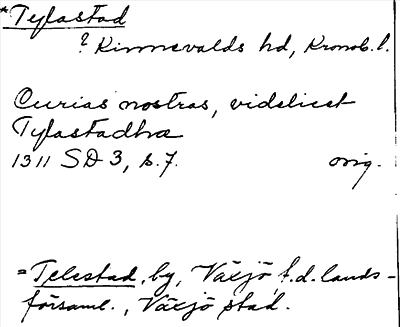 *Tylastad
? Kinnevalds hd, Kronob. l.
Curias nostras, videlicet
Tylastadhæ
1311 SD 3, s. 7. orig.
= Telestad, by, Växjö f.d. lands-
församl., Växjö stad.